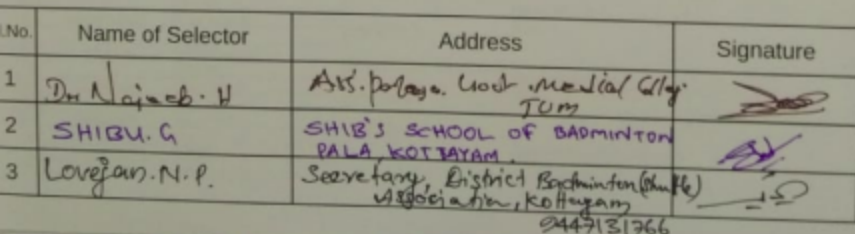 .No. Name of Selector Address Signature
1 Dr Najeeb. H Govt. Medical Collg.
TVM
2 SHIBU. G SHIB'S SCHOOL OF BADMINTON
PALA, KOTTAYAM.
3 Lovejan. N. P. Secretary, District Badminton (Shuttle)
Association, Kottayam
9447131766